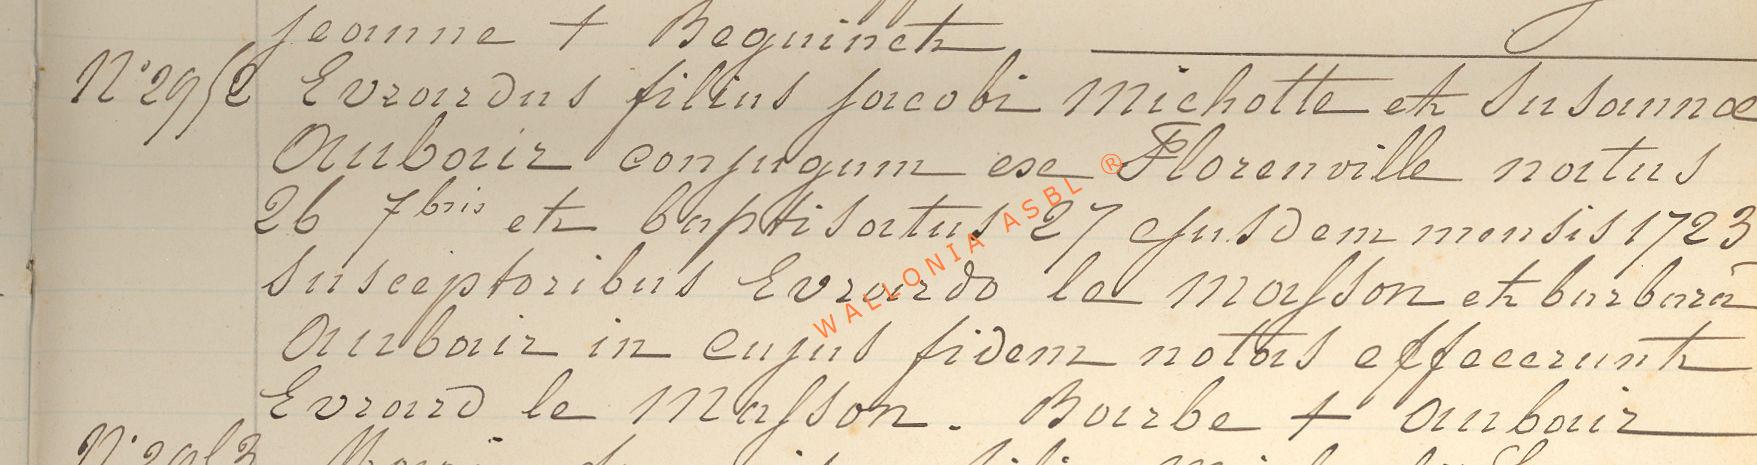 Jeanne + Beguinet
N° 2952 Evrardus filius Jacobi Michotte et Susannæ
Aubair conjugum ex Florenville natus
26 7bris et baptisatus 27 ejusdem mensis 1723
Susceptoribus Evrardo le Masson et barbarā
Aubair in cujus fidem notas effecerunt
Evrard le Masson. Barbe + Aubair
N° 2953
WALLONIA ASBL ®